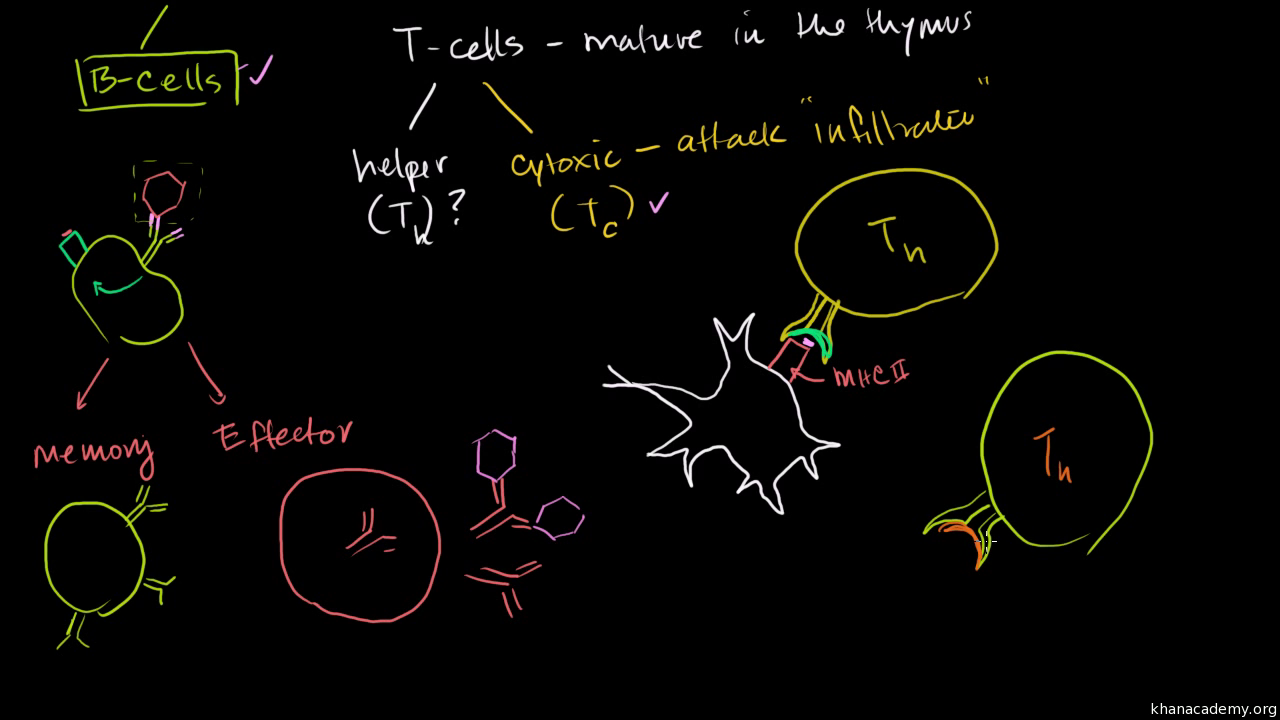 T-cells - mature in the thymus
B-cells
helper
(Th)?
cytoxic - attack "infiltrated"
(Tc)
Tn
MHC II
Memory
Effector
Tn
khanacademy.org